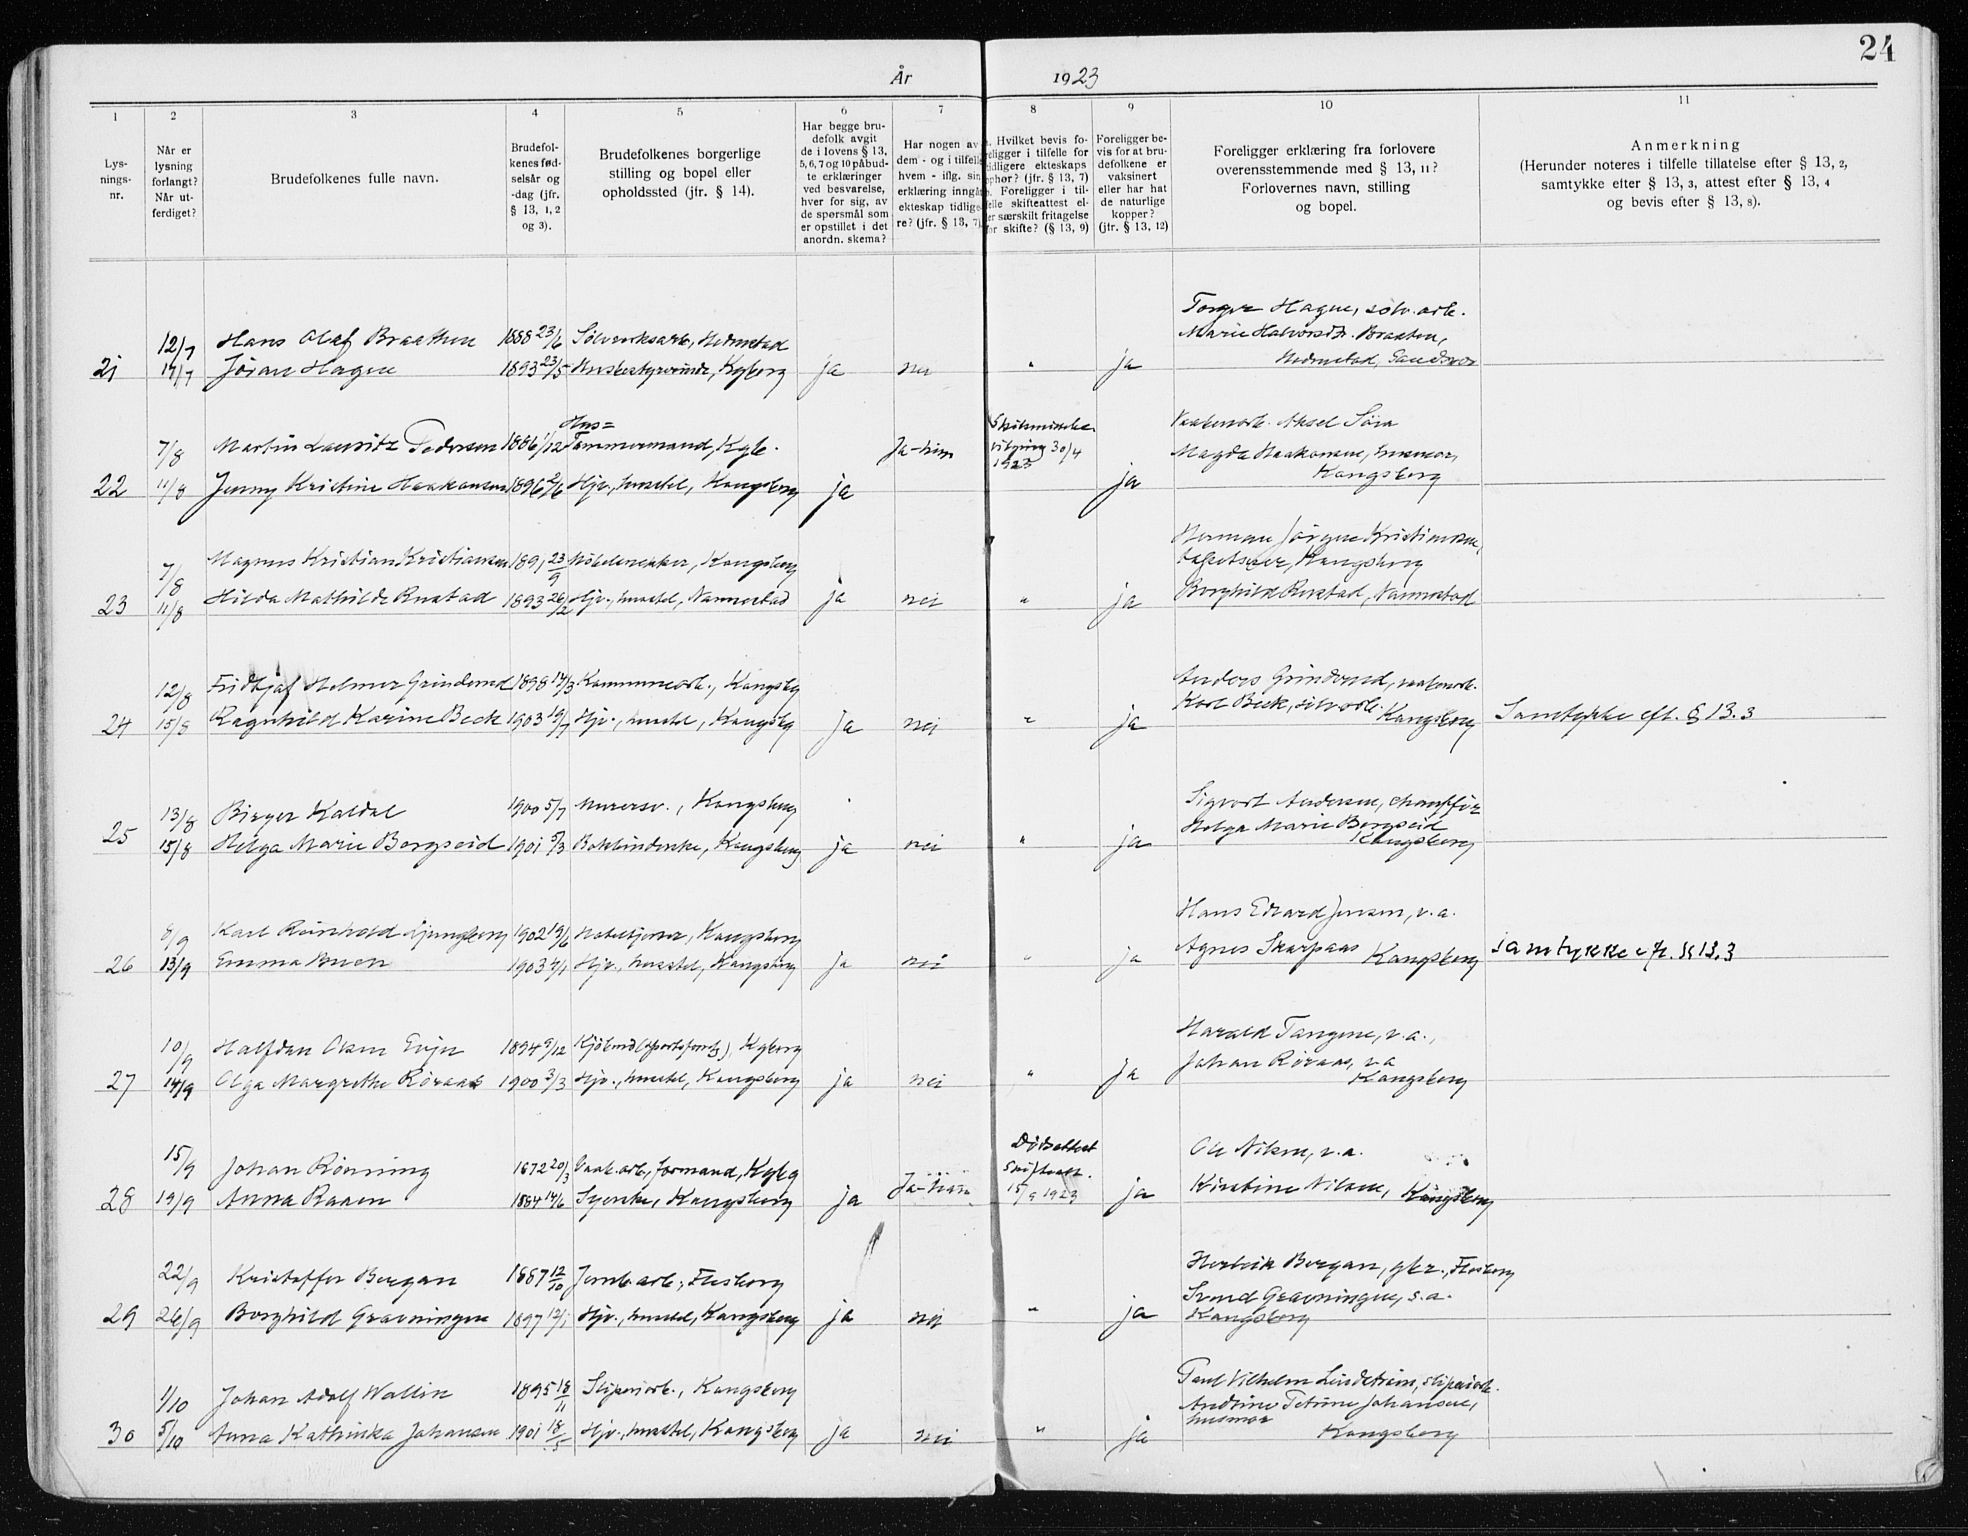 24
År 1923
1 2 3 4 5 6 7 8 9 10 11
Lys-
nings-
nr.
Når er
lysning
forlangt?
Når ut-
ferdiget?
Brudefolkenes fulle navn.
Brudefol-
kenes fød-
selsår og
-dag (jfr.
§ 13, 1, 2
og 3).
Brudefolkenes borgerlige
stilling og bopel eller
opholdssted (jfr. § 14).
Har begge bru-
defolk avgit
de i lovens § 13,
5, 6, 7 og 10 påbud-
te erklæringer
ved besvarelse,
hver for sig, av
de spørsmål som
er opstillet i det
anordn. skema?
Har nogen av
dem - og i tilfelle
hvem - iflg. sin
erklæring inngåt
ekteskap tidlige-
re? (jfr. § 13, 7)
Hvilket bevis fo-
religger i tilfelle for
tidligere ekteskaps
ophør? (jfr. § 13, 7)
Foreligger i til-
felle skifteattest el-
ler særskilt fritagelse
for skifte? (§ 13, 9)
Foreligger be-
vis for at bru-
defolkene er
vaksinert
eller har hat
de naturlige
kopper?
(jfr. § 13, 12)
Foreligger erklæring fra forlovere
overensstemmende med § 13, 11?
Forlovernes navn, stilling
og bopel.
Anmerkning
(Herunder noteres i tilfelle tillatelse efter § 13, 2,
samtykke efter § 13, 3, attest efter § 13, 4
og bevis efter § 13, 8).
Torger Hagen, sølv.arb.
12/7 Hans Olaf Braathen 1888 23/6 Sølvverksarb., Hedenstad Marie Halvorsdtr. Braaten,
21 17/7 Jøran Hagen 1893 23/5 Husbestyrerinde, Kgberg ja nei " ja Hedenstad, Sandsvær
7/8 Martin Lauritz Pedersen 1886 1/12 Hus=
Tømmermand, Kgb. Ja-han Skilsmisse
bevilgning 30/4
1923 Vaabenarb. Aksel
Magda Haakonsen, husmor,
22 11/8 Jenny Kristine Haakonsen 1896 2/6 Hjv., husstel, Kongsberg ja ja Kongsberg
Herman Jørgen Kristiansen,
7/8 Magnus Kristian Kristiansen 1891 23/9 Møbelsnekker, Kongsberg Kongsberg
23 11/8 Hilda Mathilde Rustad 1893 26/2 Hjv., husstel, Nannestad ja nei " ja Borghild Rustad, Nannestad
12/8 Fridtjof Helmer Grinderud 1898 14/3 Kommunearb., Kongsbg Anders Grinderud, vaabenarb.
24 15/8 Ragnhild Karine Beck 1903 19/7 Hjv., husstel, Kongsbg ja nei " ja Karl Beck, sølvarb. Kongsberg Samtykke eft. § 13.3
13/8 Birger Kaldal 1900 5/7 Murersv., Kongsberg Sigvart Andersen, chauffør
25 15/8 Helga Marie Bergseid 1901 5/3 Bokbinderske, Kongsberg ja nei " ja Helga Marie Bergseid
Kongsberg
8/9 Karl Reinhold Ljungberg 1902 19/6 Hotelkjører, Kongsberg Hans Edvard Jensen, v.a.
26 13/9 Emma Buen 1903 4/1 Hjv., husstel, Kongsberg ja nei " ja Agnes Skarpaas Kongsberg Samtykke eft. § 13.3
10/9 Halfdan Olsen Evju 1894 9/12 Kjøbmd (Sportsforretn), Kgberg Harald Tangene, v.a.,
27 14/9 Olga Margrethe Røraas 1900 3/3 Hjv., husstel, Kongsberg ja nei " ja Johan Røraas, v.a
Kongsberg
15/9 Johan Rønning 1872 20/3 Vaab.arb., formand, Kgbg Dødsattest
Skifteatt.
15/9 1923 Ole Nilsen, v.a.
28 19/9 Anna Raaen 1884 14/6 Syerske, Kongsberg ja Ja-han ja Kirstine Nilsen, Kongsberg
22/9 Kristoffer Bergan 1887 12/10 Jernb.arb., Flesberg Herleik Bergan, gbr., Flesberg
29 26/9 Borghild Gravningen 1897 12/1 Hjv., husstel, Kongsberg ja nei " ja Svend Gravningen, s.a.
Kongsberg
1/10 Johan Adolf Wallin 1895 18/11 Sliperiarb., Kongsberg Paul Vilhelm Lindstrøm, sliperiarb.
Andrine Petrine Johansen,
husmor
30 5/10 Anna Kathinka Johansen 1901 18/5 Hjv., husstel, Kongsberg ja nei " ja Kongsberg